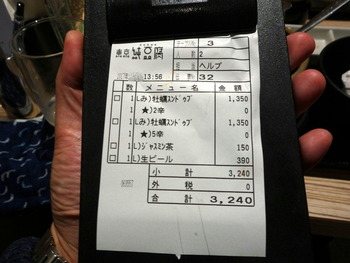 東京
3
2
ヘルプ
13:56
32
数 メニュー名 金額
1 Lみ)牡蠣スンドゥブ 1,350
1 ★)2辛 0
1 Lみ)牡蠣スンドゥブ 1,350
1 ★)5辛 0
1 L)ジャスミン茶 150
1 L)生ビール 390
小計 3,240
外税 0
合計 3,240